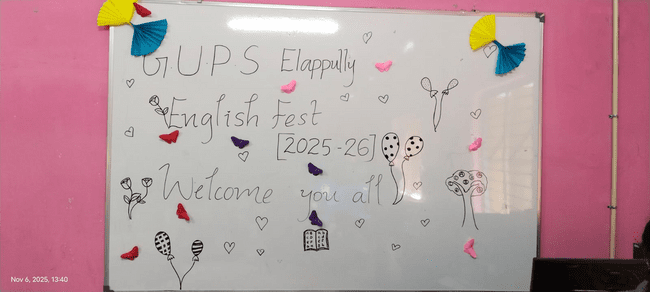 G.U.P.S Elappully
English Fest
[2025-26]
Welcome you all
Nov 6, 2025, 13:40